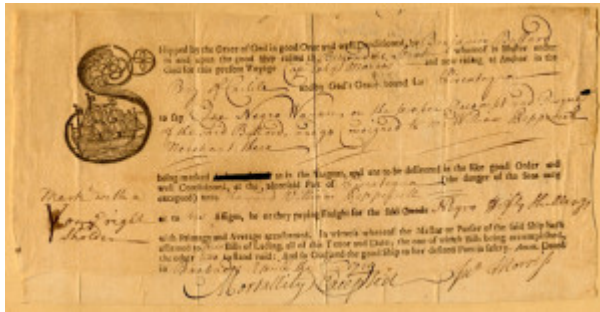 Shipped by the Grace of God in good Order and well Conditioned, by Benjamin Bullard
in and upon the good Ship called the whereof is Master under
God for this present Voyage Cap John Morris and now riding at Anchor in the
Bay of Carlile and by God's Grace bound for Piscataqua
to say One Negro Woman on the proper Account and
of the said Bullard, and goes consigned to Mr William Pepperrell
Merchant there
being marked as in the Margent, and are to be delivered in the like good Order and
well Conditioned, at the aforesaid Port of Piscataqua (the danger of the Seas only
excepted) unto William Pepperrell
Mark'd with a
on ye right
Sholder
or to his Assigns, he or they paying Freight for the said Goods Negro Fifty Shillings
with Primage and Average accustomed. In witness whereof the Master or Purser of the said Ship hath
affirmed to Bills of Lading, all of this Tenor and Date, the one of which Bills being accomplished,
the other to stand void: And so God send the good Ship to her desired Port in safety. Amen. Dated
in Barbados
Mortallity Excepted Jno Morris